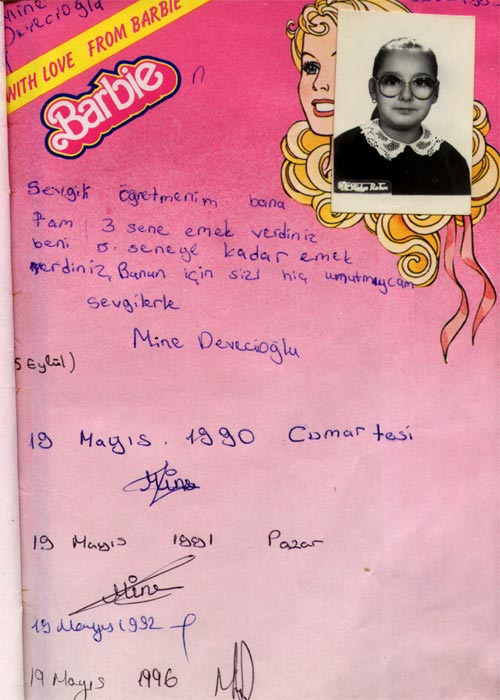 Mine
Devecioğla
WITH LOVE FROM BARBIE
Barbie
n
Sevgili öğretmenim bana
tam 3 sene emek verdiniz
beni 5. seneye kadar emek
verdiniz, Bunun için sizi hiç umutmıycam
sevgilerle
Mine Devecioğlu
5 Eylül)
19 Mayıs . 1990 Cumartesi
Mine
19 Mayıs 1991 Pazar
Mine
19 Mayıs 1992
19 Mayıs 1996